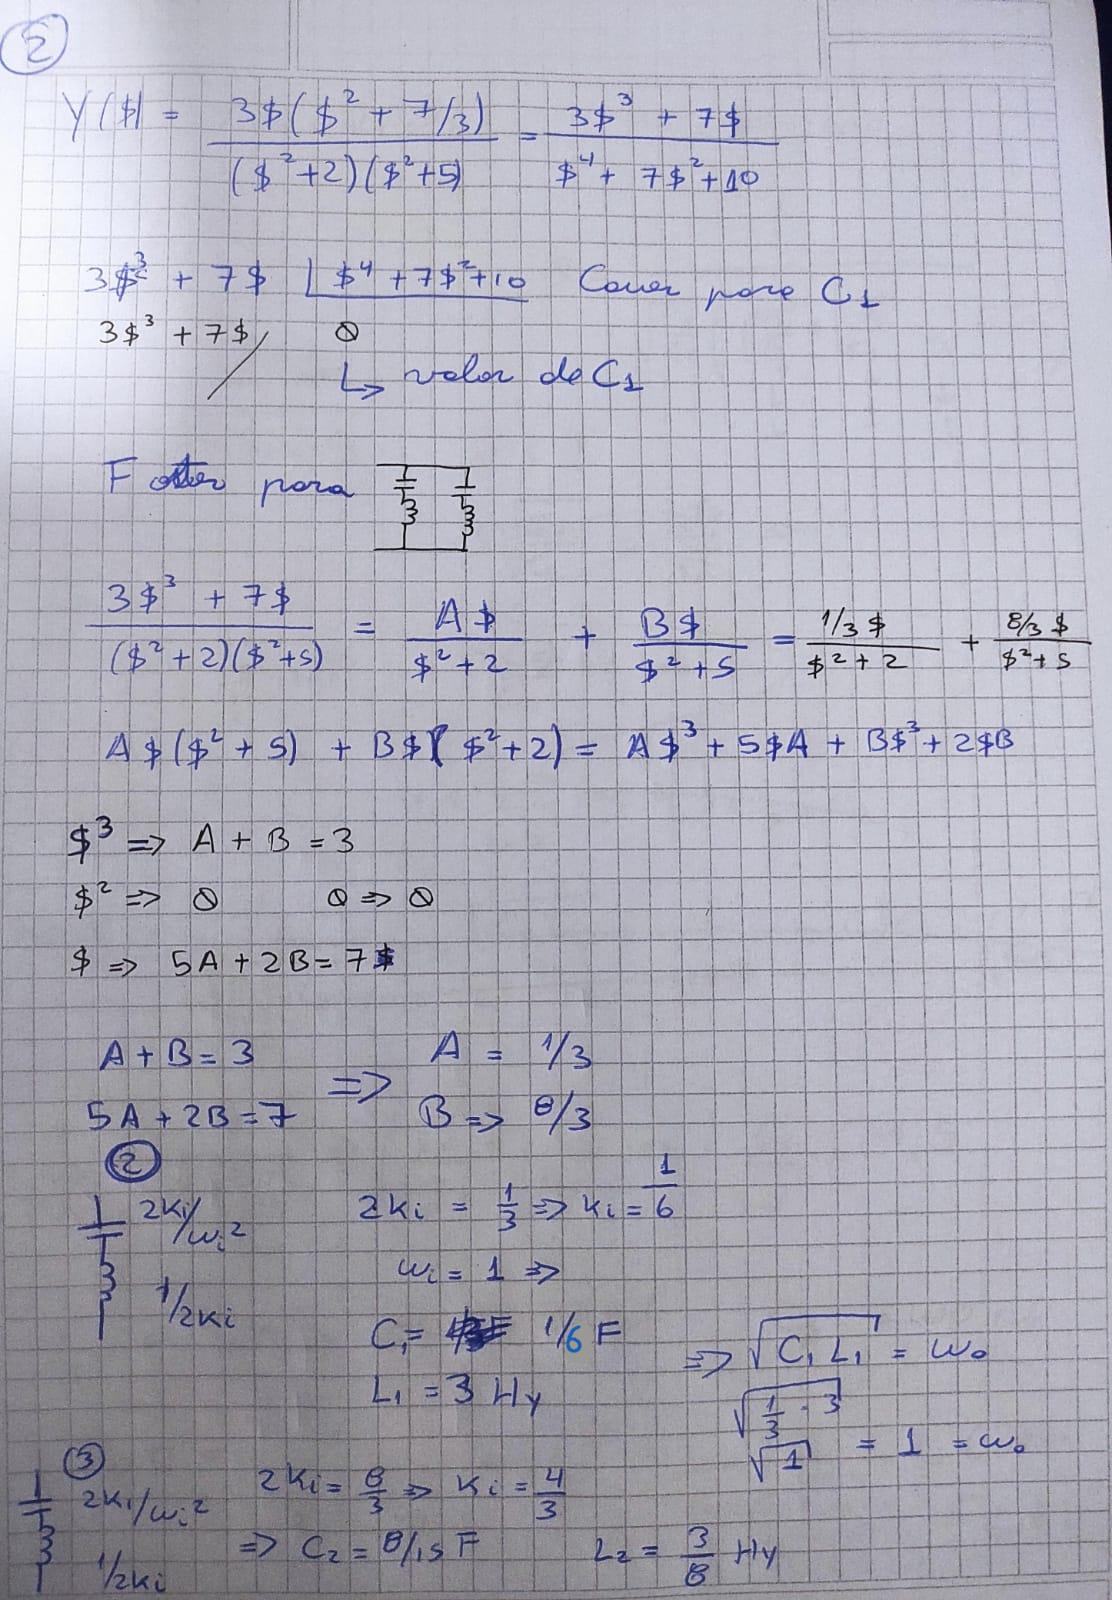 2
Y($) = 3$($² + 7/3) / ($²+2)($²+5) = 3$³ + 7$ / $⁴ + 7$²+10
3$³ + 7$ | $⁴ + 7$²+10 Cauer para C1
3$³ + 7$ 0
↳ valor de C1
Foster para
3$³ + 7$ / ($²+2)($²+5) = A$ / $²+2 + B$ / $²+5 = 1/3 $ / $²+2 + 8/3 $ / $²+5
A$($²+5) + B$($²+2) = A$³ + 5$A + B$³ + 2$B
$³ => A + B = 3
$² => 0 0 => 0
$ => 5A + 2B = 7
A + B = 3 => A = 1/3
5A + 2B = 7 B => 8/3
2
2Ki/ωi² 2Ki = 1/3 => Ki = 1/6
1/2Ki ωi = 1 =>
C1 = 1/6 F => √(C1 L1) = ω0
L1 = 3 Hy √(1/3 · 3)
√1 = 1 = ω0
3
2Ki/ωi² 2Ki = 8/3 => Ki = 4/3
1/2Ki => C2 = 8/15 F L2 = 3/8 Hy